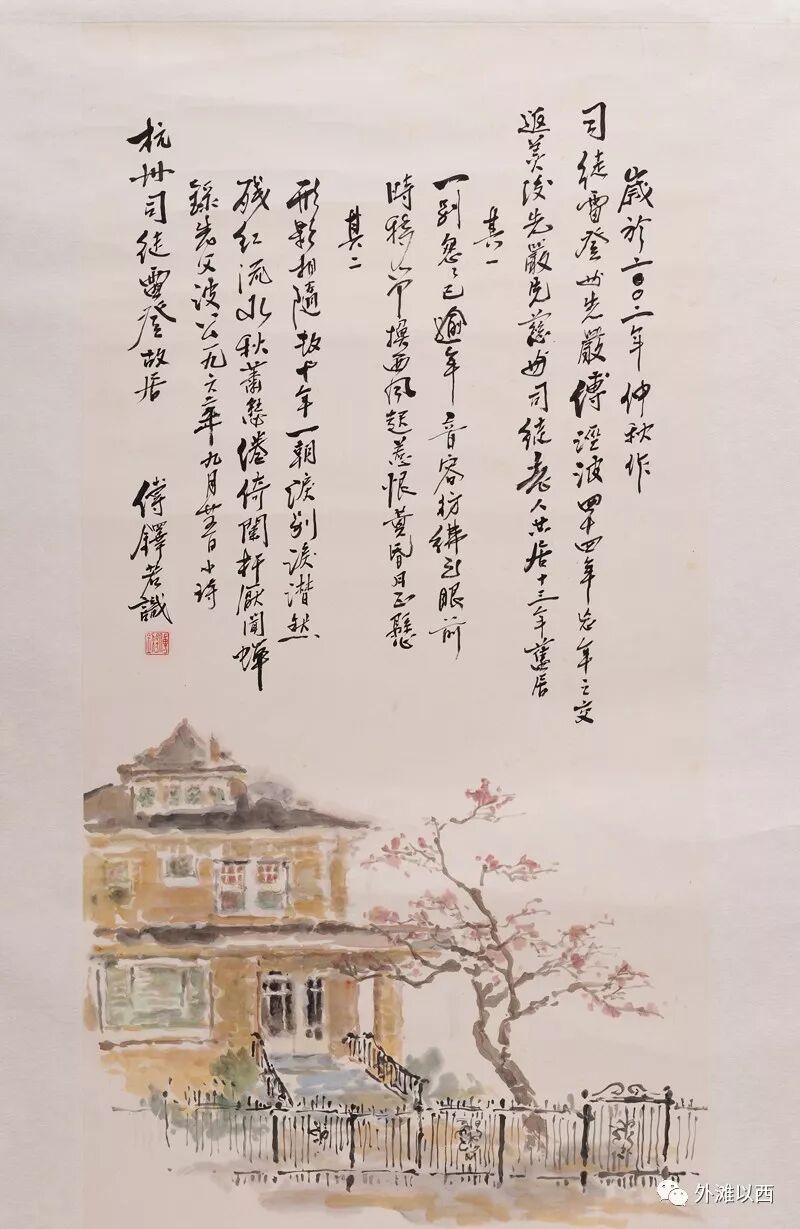 歲於二〇〇二年仲秋作
司徒雷登與先嚴傅涇波四十四年忘年之交
返美後先嚴先慈與司徒老人共居十三年舊居
其一
一別忽忽已逾年音容彷彿在眼前
時移節換西風起惹恨黃昏月正懸
其二
形影相隨數十年一朝別淚潸然
殘紅流水秋蕭瑟倦倚闌杆厭聞蟬
錄先父波公一九六三年九月廿五日小詩
杭州司徒雷登故居
傅鐸若識
外滩以西